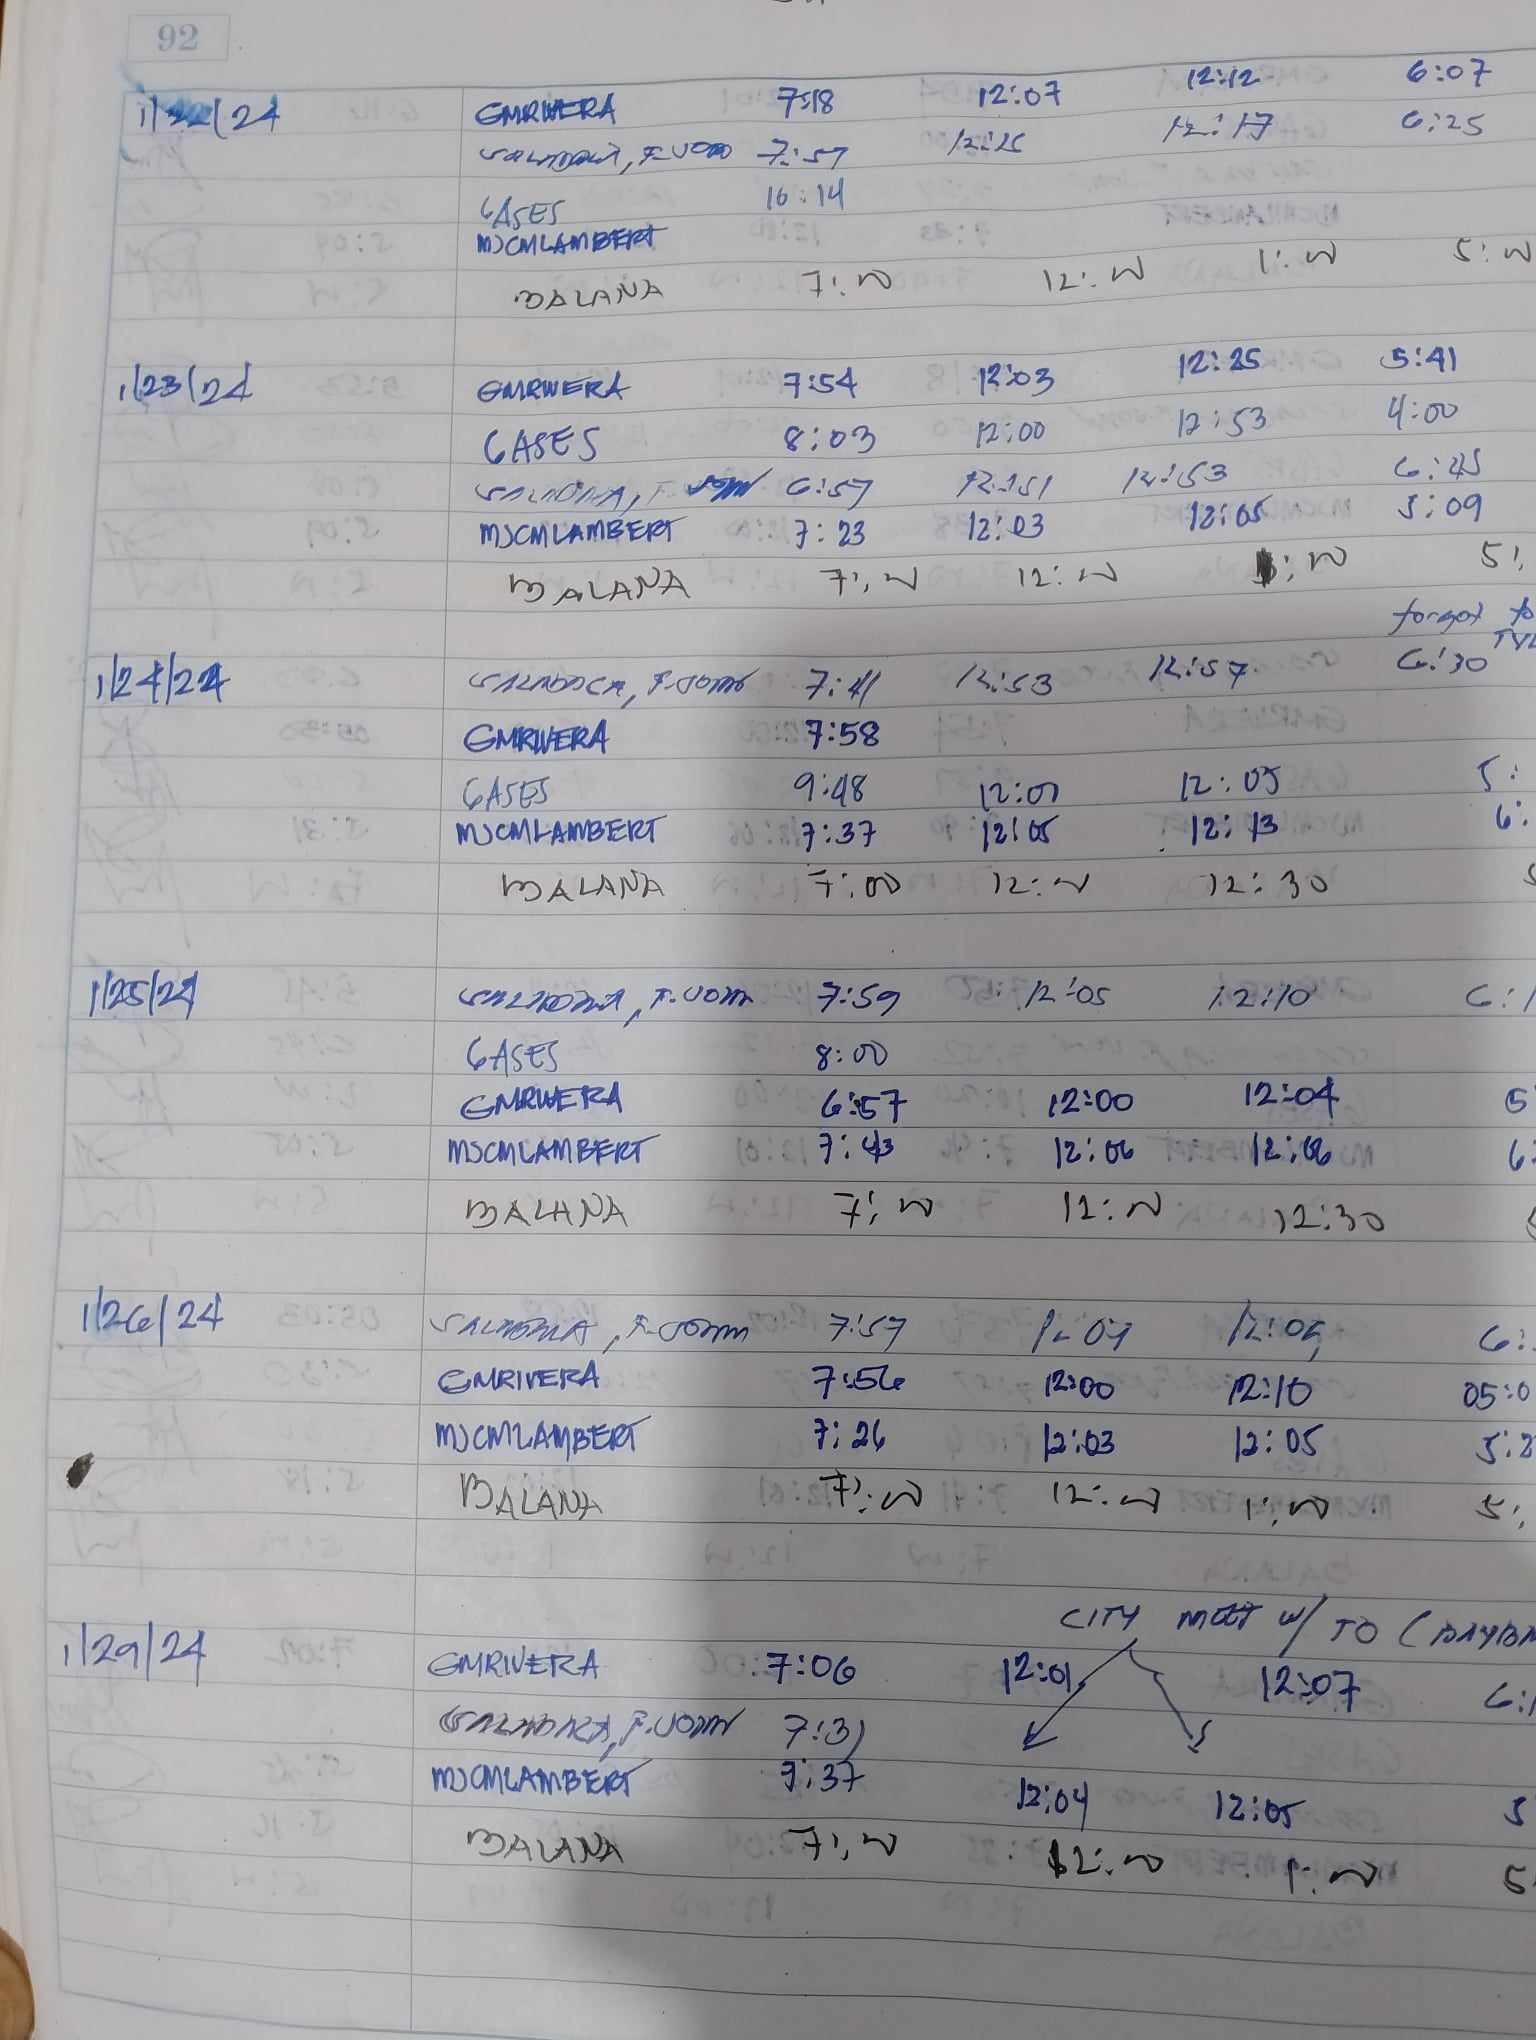 92
1/22/24 GMRIVERA 7:18 12:07 12:12 6:07
7:57 12:17 6:25
GASES 10:14
MJCMLAMBERT
BALANA 7:00 12:00 1:00 5:00
1/23/24 GMRIVERA 7:54 12:03 12:25 5:41
GASES 8:03 12:00 12:53 4:00
6:57 12:51 12:53 6:45
MJCMLAMBERT 7:23 12:03 12:05 5:09
BALANA 7:00 12:00 5:
forgot to
1/24/24 7:41 12:53 12:57 6:30
GMRIVERA 7:58
GASES 9:48 12:05 5:
MJCMLAMBERT 7:37 12:05 12:13 6:
BALANA 7:00 12:00 12:30
1/25/24 7:59 12:05 12:10 6:
GASES 8:00
GMRIVERA 6:57 12:00 12:04
MJCMLAMBERT 7:43 12:06 12:06
BALANA 7:00 12:00 12:30
1/26/24 7:57 6:
GMRIVERA 7:56 12:00 12:10 05:0
MJCMLAMBERT 7:26 12:03 12:05 5:
BALANA 7:00 12:00 1:00 5:
CITY MEET w/ TO
1/29/24 GMRIVERA 7:06 12:01 12:07 6:
7:31
MJCMLAMBERT 12:04 12:05
BALANA 7:00 12:00 1:00 5